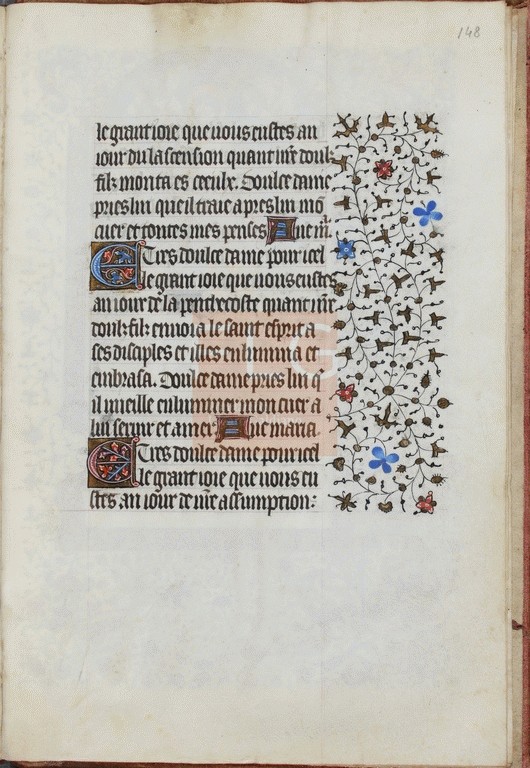 148
le grant ioie que uous eustes au
iour du lascension quant nr̄e doulz
filz monta es cieulx. Doulce dame
pries lui que il traie apres lui mō
cuer et toutes mes penses Aue m̄.
E Tres doulce dame pour icel
le grant ioie que uous eustes
au iour de la penthecoste quant nr̄e
doulz filz enuoia le saint esprit a
ses disciples et illes enlumina et
embrasa. Doulce dame pries lui q̄
il vueille enluminer mon cuer a
lui seruir et amer Aue maria
E Tres doulce dame pour icel
le grant ioie que uous eu
stes. au iour de nr̄e assumption: